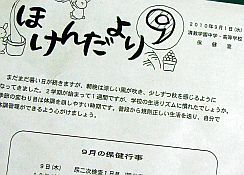 ほけんだより⑨
2010年9月1日(水)
清教学園中・高等学校
保健室
まだまだ暑い日が続きますが、朝晩は涼しい風が吹き、少しずつ秋を感じるように
なってきました。2学期が始まって1週間ですが、学校の生活リズムに慣れたでしょうか。
季節の変わり目は体調を崩しやすい時期です。普段から規則正しい生活を送り、自分で
体調管理ができるよう心がけましょう。
9月の保健行事
9日(木)
尿二次検査1日目